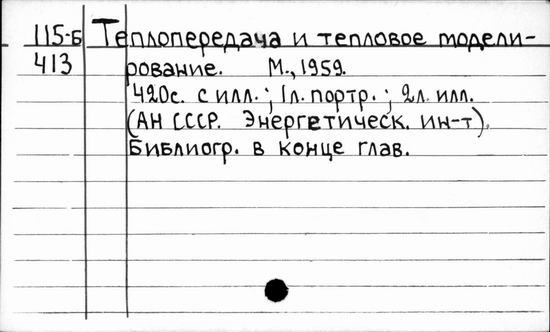 115-Б Теплопередача и тепловое модели-
413 рование. М., 1959.
420с. с илл.; 1л. портр.; 2л. илл.
(АН СССР. Энергетическ. ин-т).
Библиогр. в конце глав.